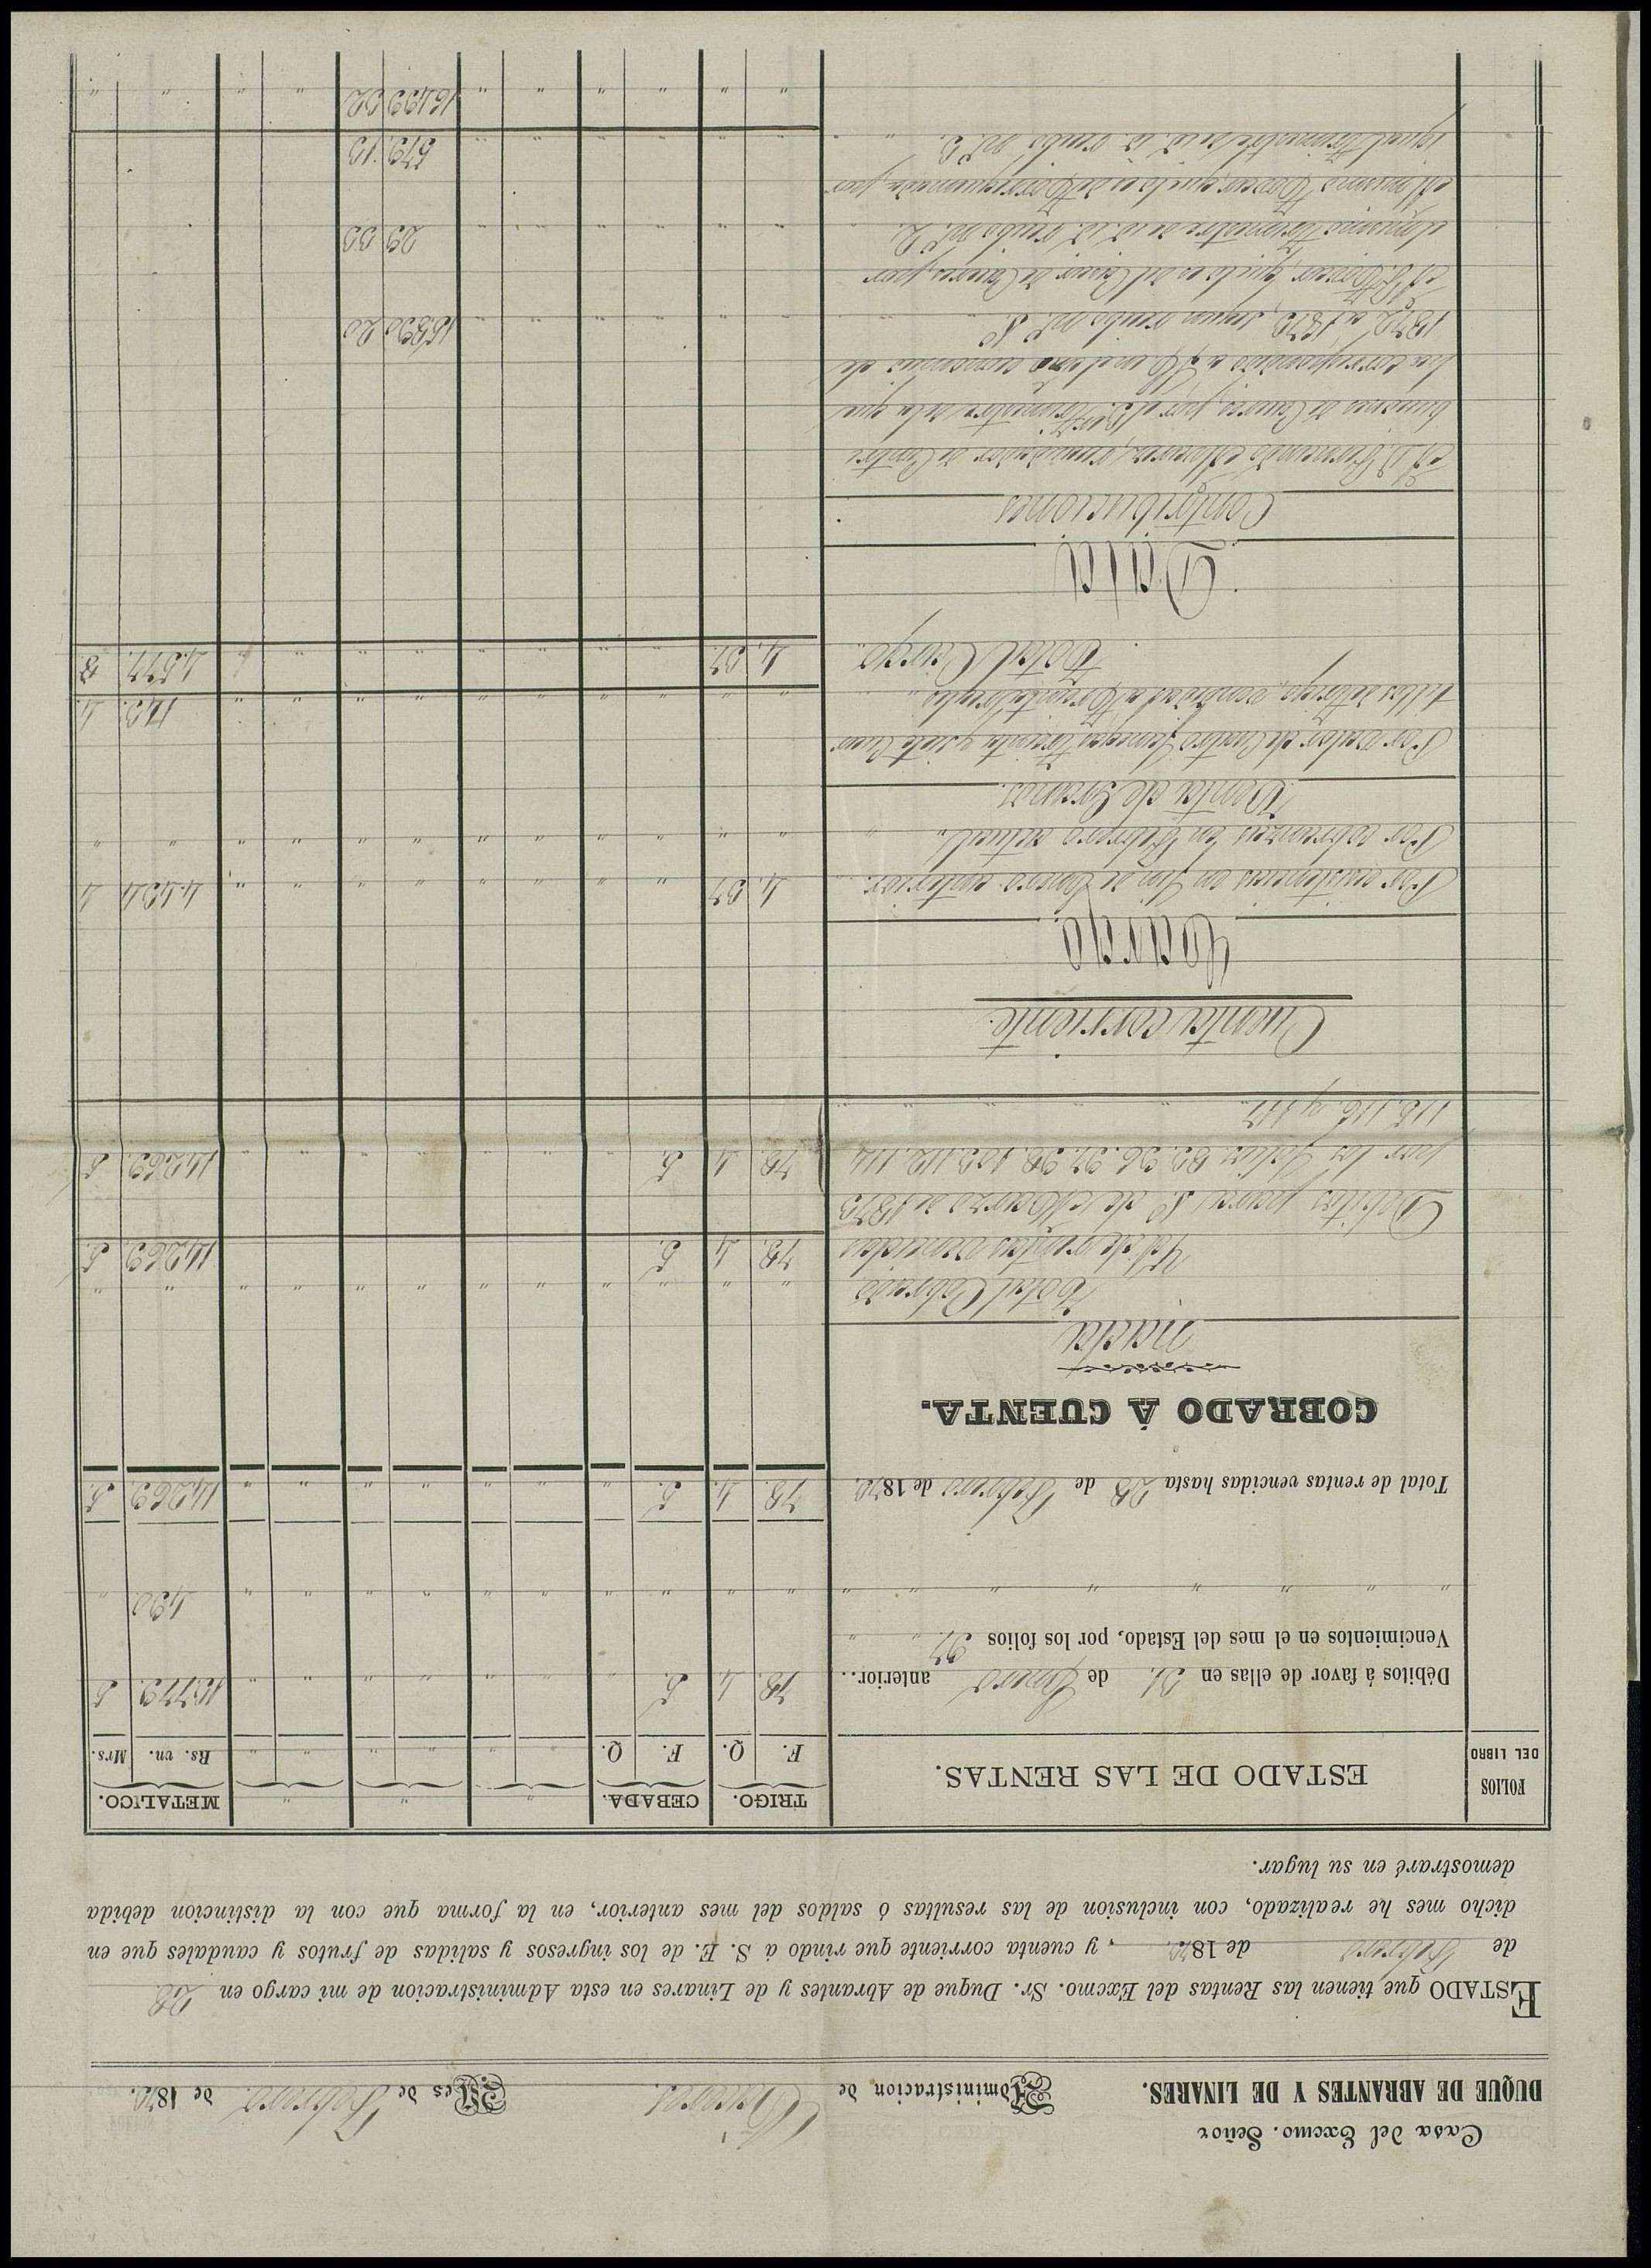 Casa del Excmo. Señor
DUQUE DE ABRANTES Y DE LINARES.
Administracion de Cáceres. Mes de Febrero de 1873.
ESTADO que tienen las Rentas del Excmo. Sr. Duque de Abrantes y de Linares en esta Administracion de mi cargo en 28
de Febrero de 1873, y cuenta corriente que rindo á S. E. de los ingresos y salidas de frutos y caudales que en
dicho mes he realizado, con inclusion de las resultas ó saldos del mes anterior, en la forma que con la distincion debida
demostraré en su lugar.
FOLIOS DEL LIBRO
ESTADO DE LAS RENTAS.
TRIGO. CEBADA. " " " METALICO.
F. Q. F. Q. " " " " " " Rs. vn. Mrs.
Débitos á favor de ellas en 31 de Enero anterior.. 78. 4 5. " " " " " " " 13779. 5
Vencimientos en el mes del Estado, por los folios 37. " "
" " " " " " " " " " " " " " " " 490. "
Total de rentas vencidas hasta 28 de Febrero de 1873. 78. 4. 5. " " " " " " " 14,269. 5.
COBRADO Á CUENTA.
nada
Total Cobrado " " " " " " " " " " " "
Yd. de rentas vencidas 78. 4 5. 14,269. 5.
Débitos para 1.º de Marzo de 1873
por los folios 89. 96. 97. 98. 103. 112. 114 78. 4 5. " " " " " " " 14,269. 5
115. 116. y 117. " " " " "
Cuenta corriente.
Cargo
Por existencias en fin de Enero anterior. 4. 37 " " " " " " " " 4.434 4
Por cobranzas en Febrero actual. " " " " " " " " " " " "
Venta de Granos.
Por valor de Cuatro fanegas treinta y siete cuar
tillos de trigo, vendidas a treinta reales " " " " " " " " " " 143. 4.
Total Cargo. 4. 37 " " " " " " " " 4.577. 8
Data
Contribuciones
A D. Fernando Alvarez, recaudador de Contri
buciones de Cáceres, por el 3.er trimestre de la que
ha correspondido a S. E. en el año economico de
1872 a 1873, segun recibo n.º 1.º " " " " 15,590 20
al mismo trimestre de id. id. recibo n.º 2. " " " " 29 33
igual trimestre de id. id. recibo n.º 3. " " " " 579. 13
" " " " " " 16199 32 " " " "